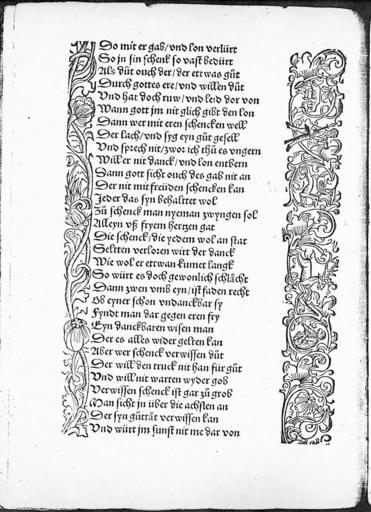 Do mit er gab/vnd lon verlürt
So jn sin schenck so vast bedürt
Als düt ouch der/der ettwas güt
Durch gottes ere/vnd willen düt
Vnd hat doch ruw/vnd leid dor von
Wann gott jm nit glich gibt den lon
Dann wer mit eren schencken well
Der lach/vnd syg eyn güt gesell
Vnd sprech nit/zwor ich thü es vngern
Will er nit danck/vnd lon entbern
Dann gott sicht ouch des gab nit an
Der nit mit freüden schencken kan
Jeder das syn behalttet wol
Zü schenck man nyeman zwyngen sol
Alleyn vß fryem hertzen gat
Die schenck/die yedem wol an stat
Seltten verloren wirt der danck
Wie wol er ettwan kumet langk
So würt es doch gewonlich schlächt
Dann zwen vmb eyn/ist faden recht
Ob eyner schon vndanckbar sy
Fyndt man dar gegen eren fry
Eyn danckbaren wisen man
Der es alles wider gelten kan
Aber wer schenck verwissen düt
Der will den truck nit han für güt
Vnd will nit warten wyder gob
Verwissen schenck ist gar zü grob
Man sicht jn über die achslen an
Der syn güttät verwissen kan
Vnd würt jm sunst nit me dar von